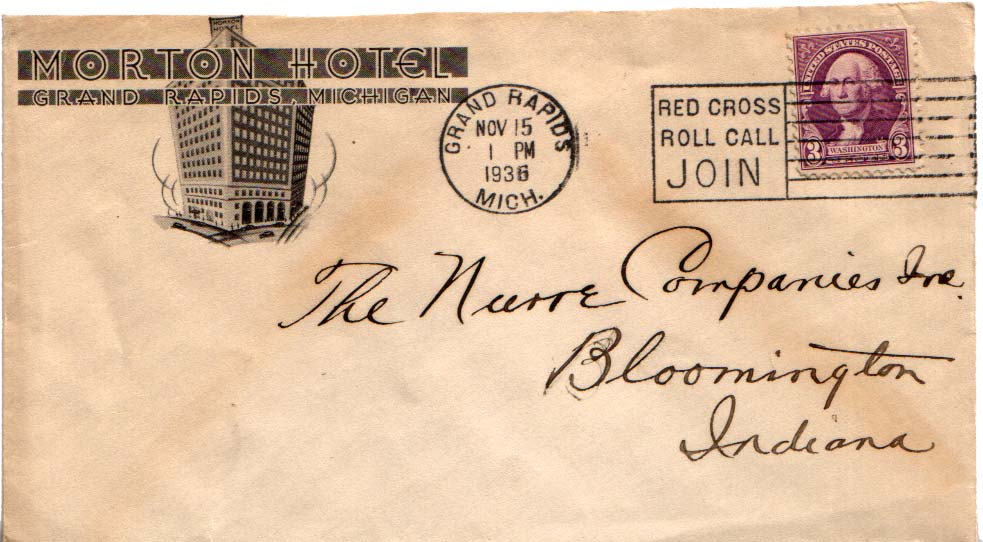 MORTON
HOTEL
MORTON HOTEL
GRAND RAPIDS, MICHIGAN
GRAND RAPIDS
NOV 15
1 PM
1936
MICH.
RED CROSS
ROLL CALL
JOIN
UNITED STATES POSTAGE
3 WASHINGTON 3
The Nurre Companies Inc.
Bloomington
Indiana